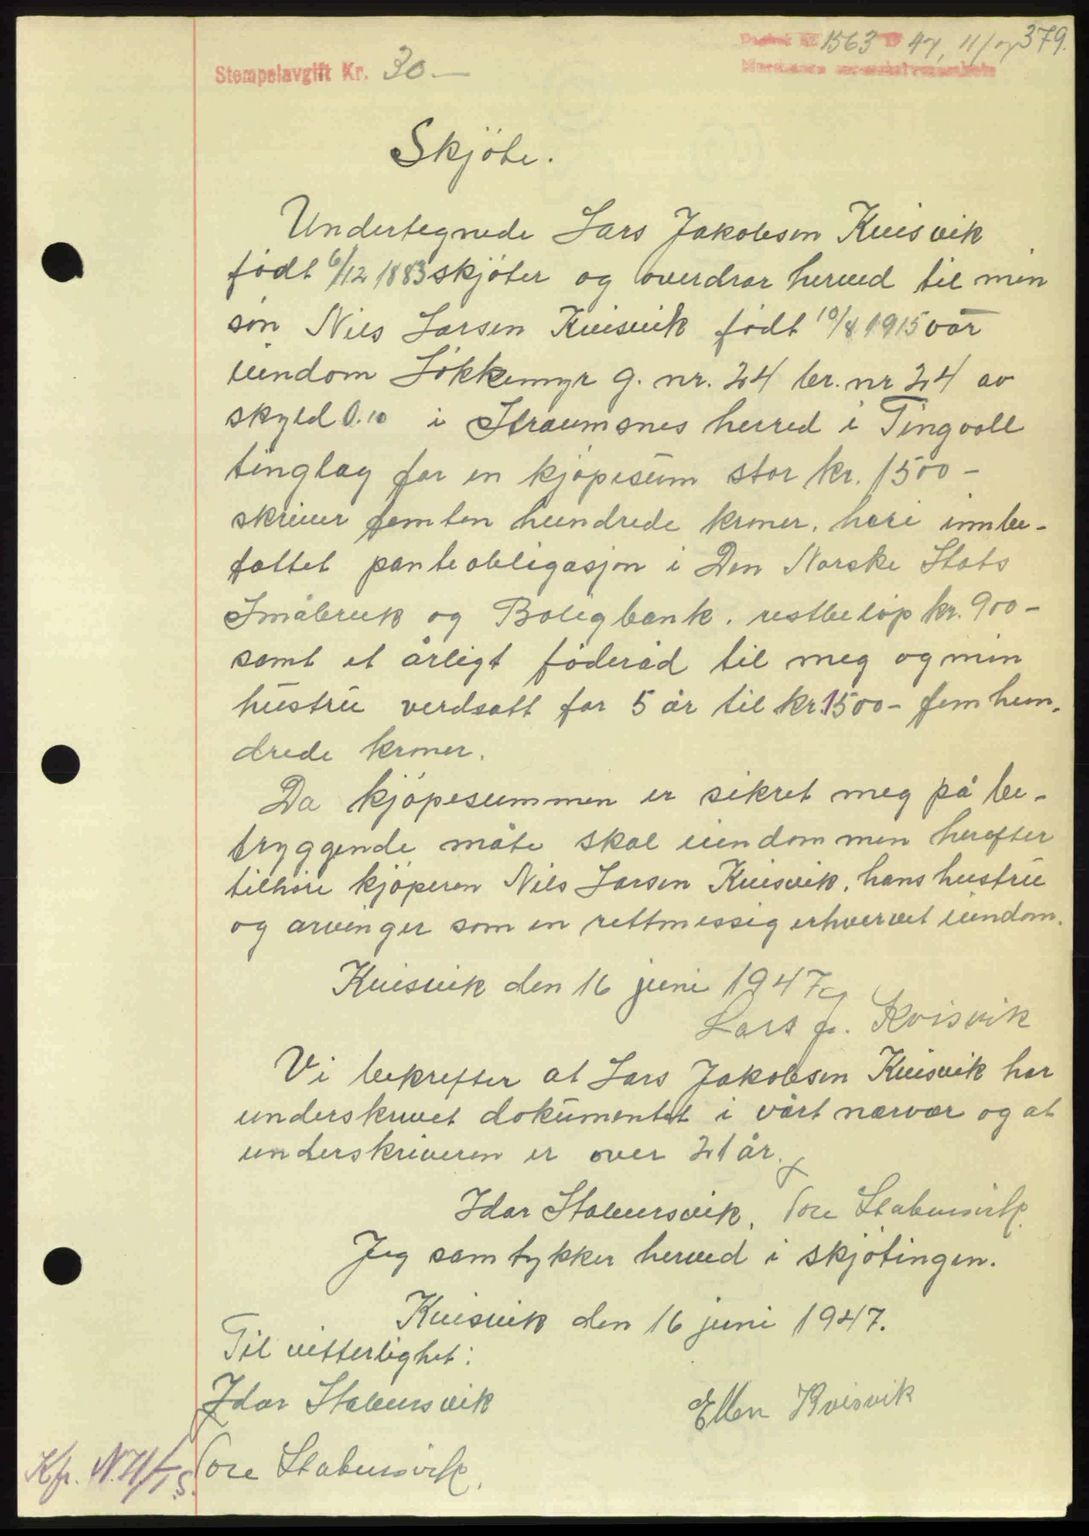 379.
1563 47, 11/7
Stempelavgift Kr. 30 —
Skjöte.
Undertegnede Lars Jakobsen Kvisvik
født 6/12 1883 skjöter og overdrar herved til min
sön Nils Larsen Kvisvik født 10/8 1915 vår
eiendom Lökkemyr g. nr. 24 br. nr 24 av
skyld 0.10 i Straumsnes herred i Tingvoll
tinglag for en kjöpesum stor kr. 1500 –
skriver femten hundrede kroner. heri innbe-
fattet panteobligasjon i Den Norske Stats
Småbruk og Boligbank. restbelöp kr. 900 –
samt et årligt föderåd til meg og min
hustru verdsatt for 5 år til kr. 1500 – fem hun-
drede kroner.
Da kjöpesummen er sikret meg på be-
tryggende måte skal eiendommen herefter
tilhöre kjöperen Nils Larsen Kvisvik, hans hustru
og arvinger som en rettmessig erhvervet eiendom.
Kvisvik den 16 juni 1947
Lars J. Kvisvik
Vi bekrefter at Lars Jakobsen Kvisvik har
underskrevet dokumentet i vårt nærvær og at
underskriveren er over 21 år.
Idar Stabursvik. Tore Stabursvik.
Jeg samtykker herved i skjötingen.
Kvisvik den 16 juni 1947.
Til vitterlighet:
Idar Stabursvik
Ellen Kvisvik
Tore Stabursvik.
Kfr.